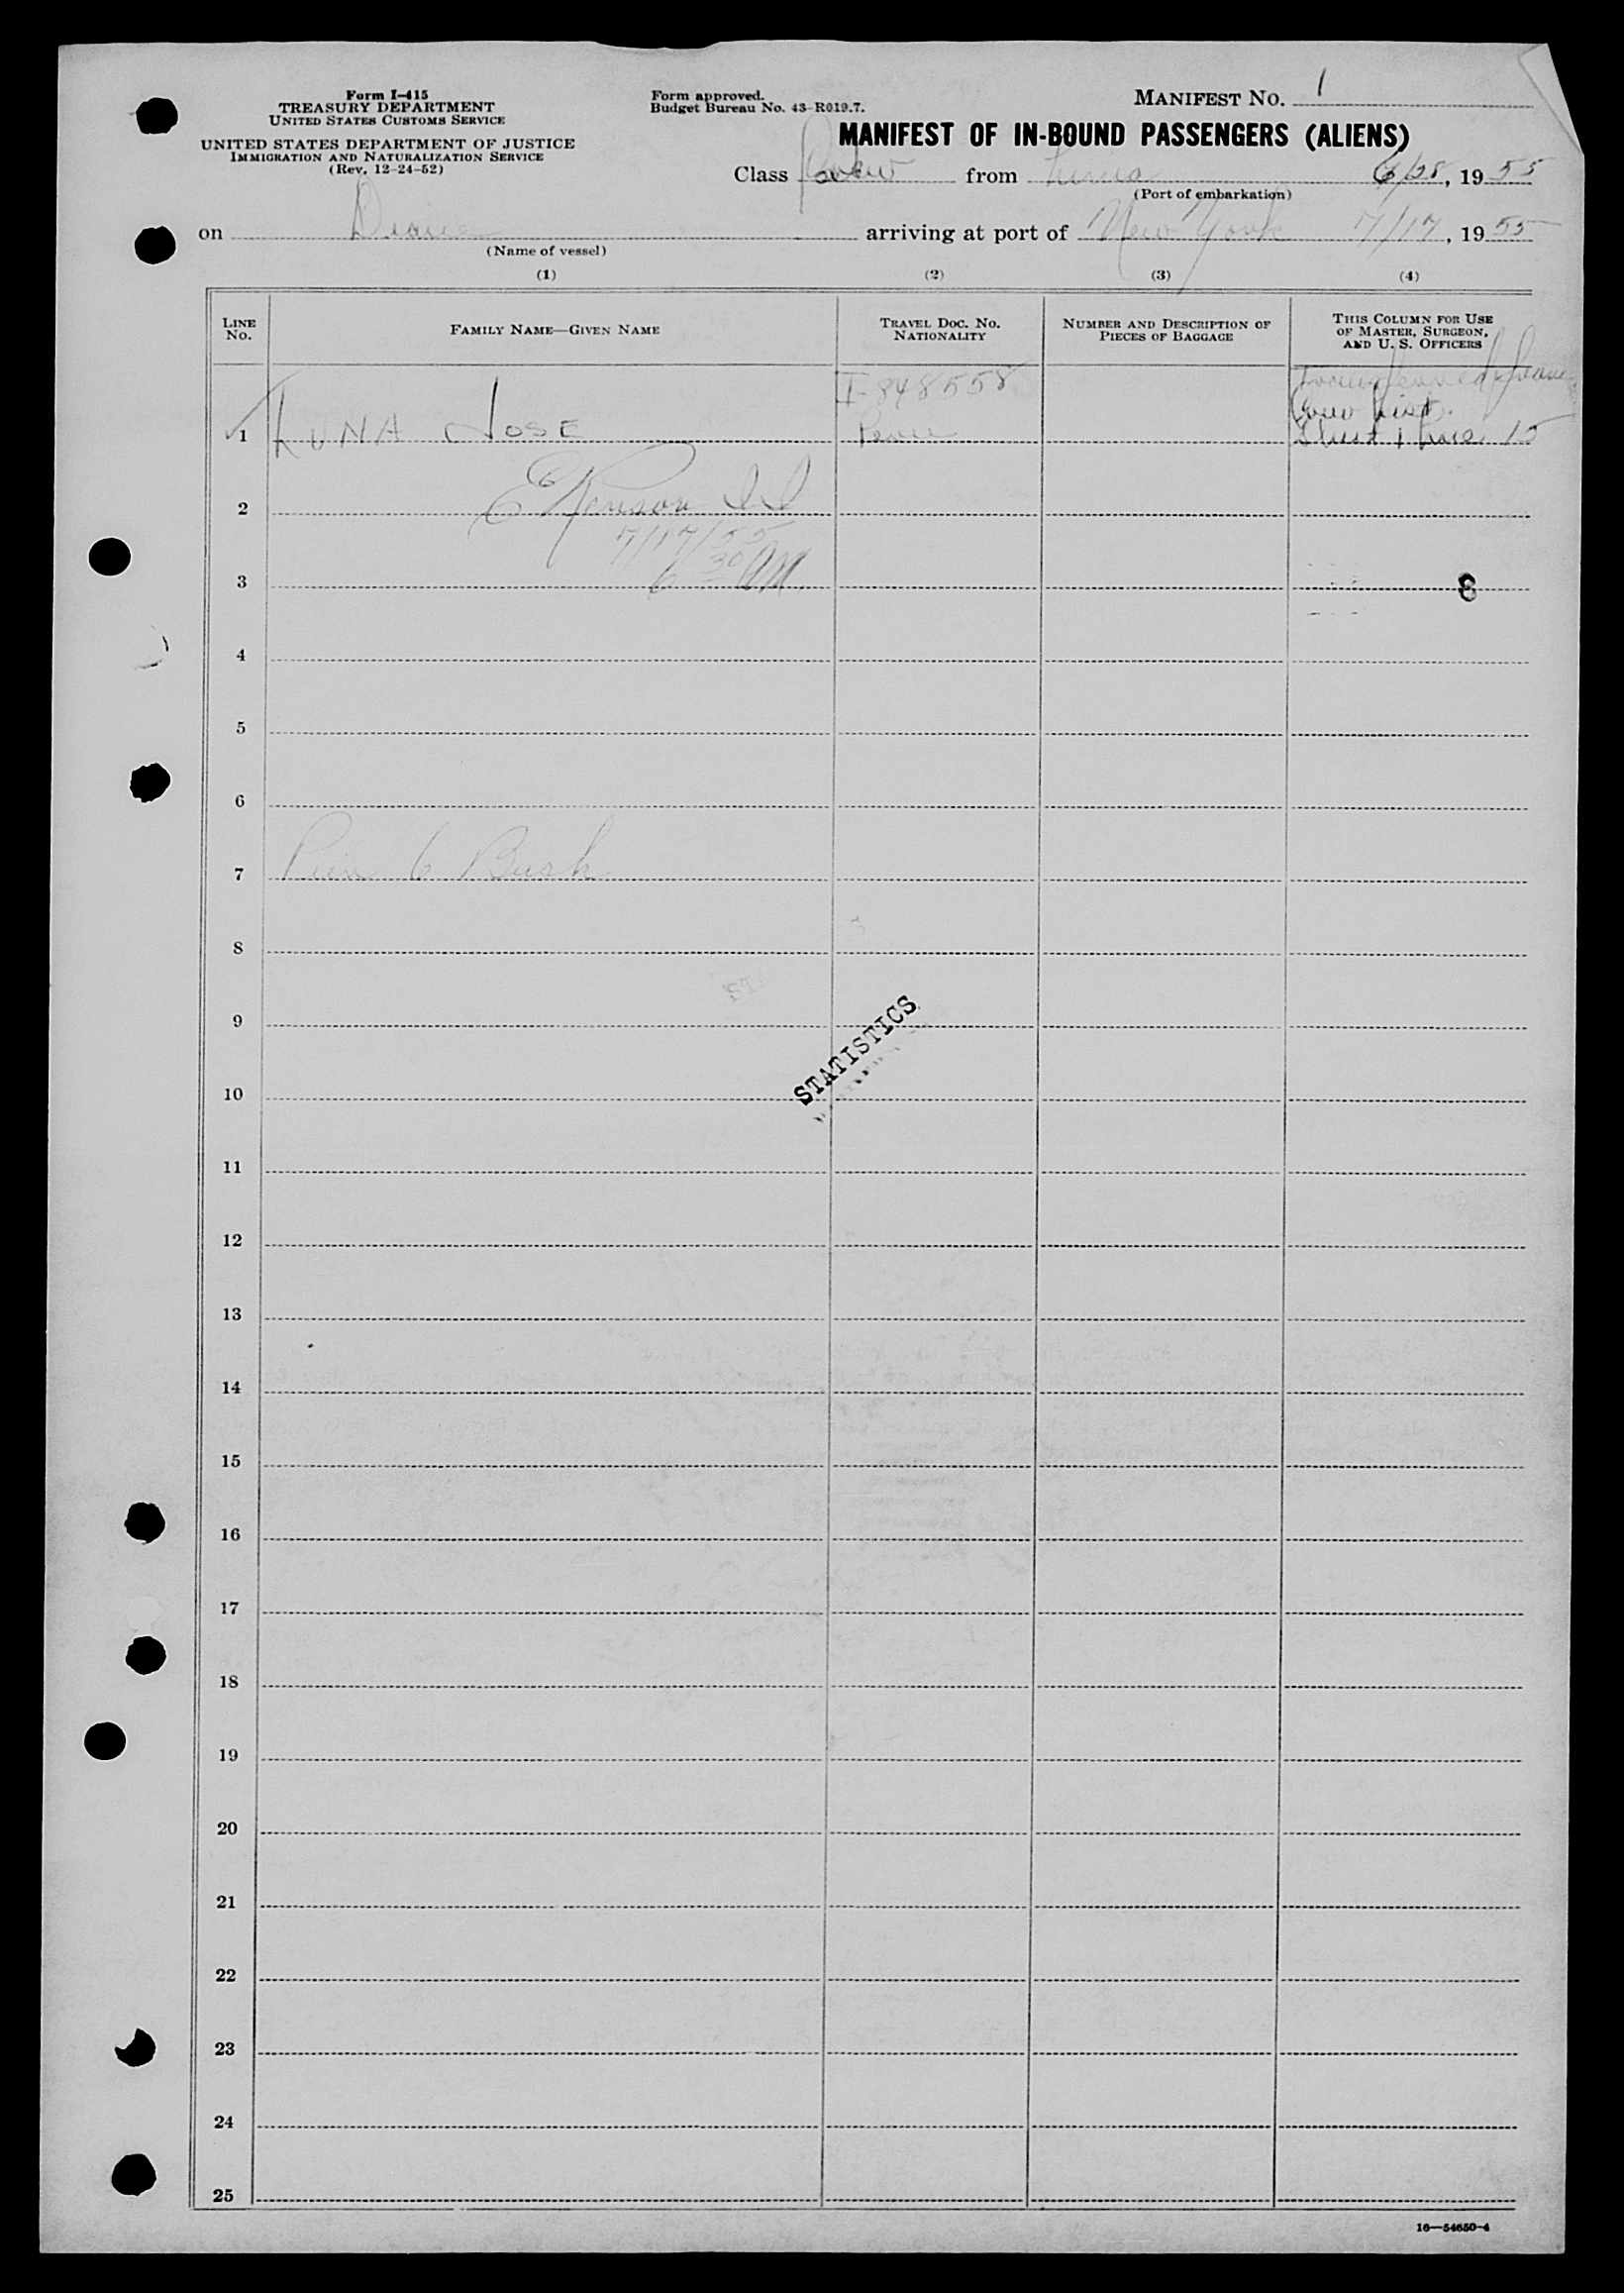 Form I-415
TREASURY DEPARTMENT
UNITED STATES CUSTOMS SERVICE
UNITED STATES DEPARTMENT OF JUSTICE
IMMIGRATION AND NATURALIZATION SERVICE
(Rev. 12-24-52)
Form approved.
Budget Bureau No. 43-R019.7.
MANIFEST NO. 1
MANIFEST OF IN-BOUND PASSENGERS (ALIENS)
Class from 6/28, 1955
(Port of embarkation)
on arriving at port of New York 7/17, 1955
(Name of vessel)
(1) (2) (3) (4)
LINE No.
FAMILY NAME—GIVEN NAME
TRAVEL DOC. NO. NATIONALITY
NUMBER AND DESCRIPTION OF PIECES OF BAGGAGE
THIS COLUMN FOR USE OF MASTER, SURGEON, AND U. S. OFFICERS
I-848558
1 LUNA JOSE
Crew List.
Sheet 1 Line 15
2
7/17/55
6 30 AM
3 8
4
5
6
7 Pier 6 Bush
8
9
STATISTICS
10
11
12
13
14
15
16
17
18
19
20
21
22
23
24
25
16—54650-4